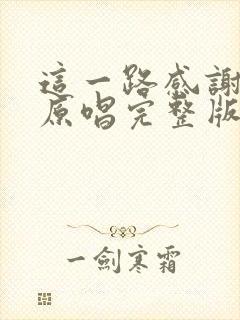 這一路感謝
原唱完整版
一劍寒霜